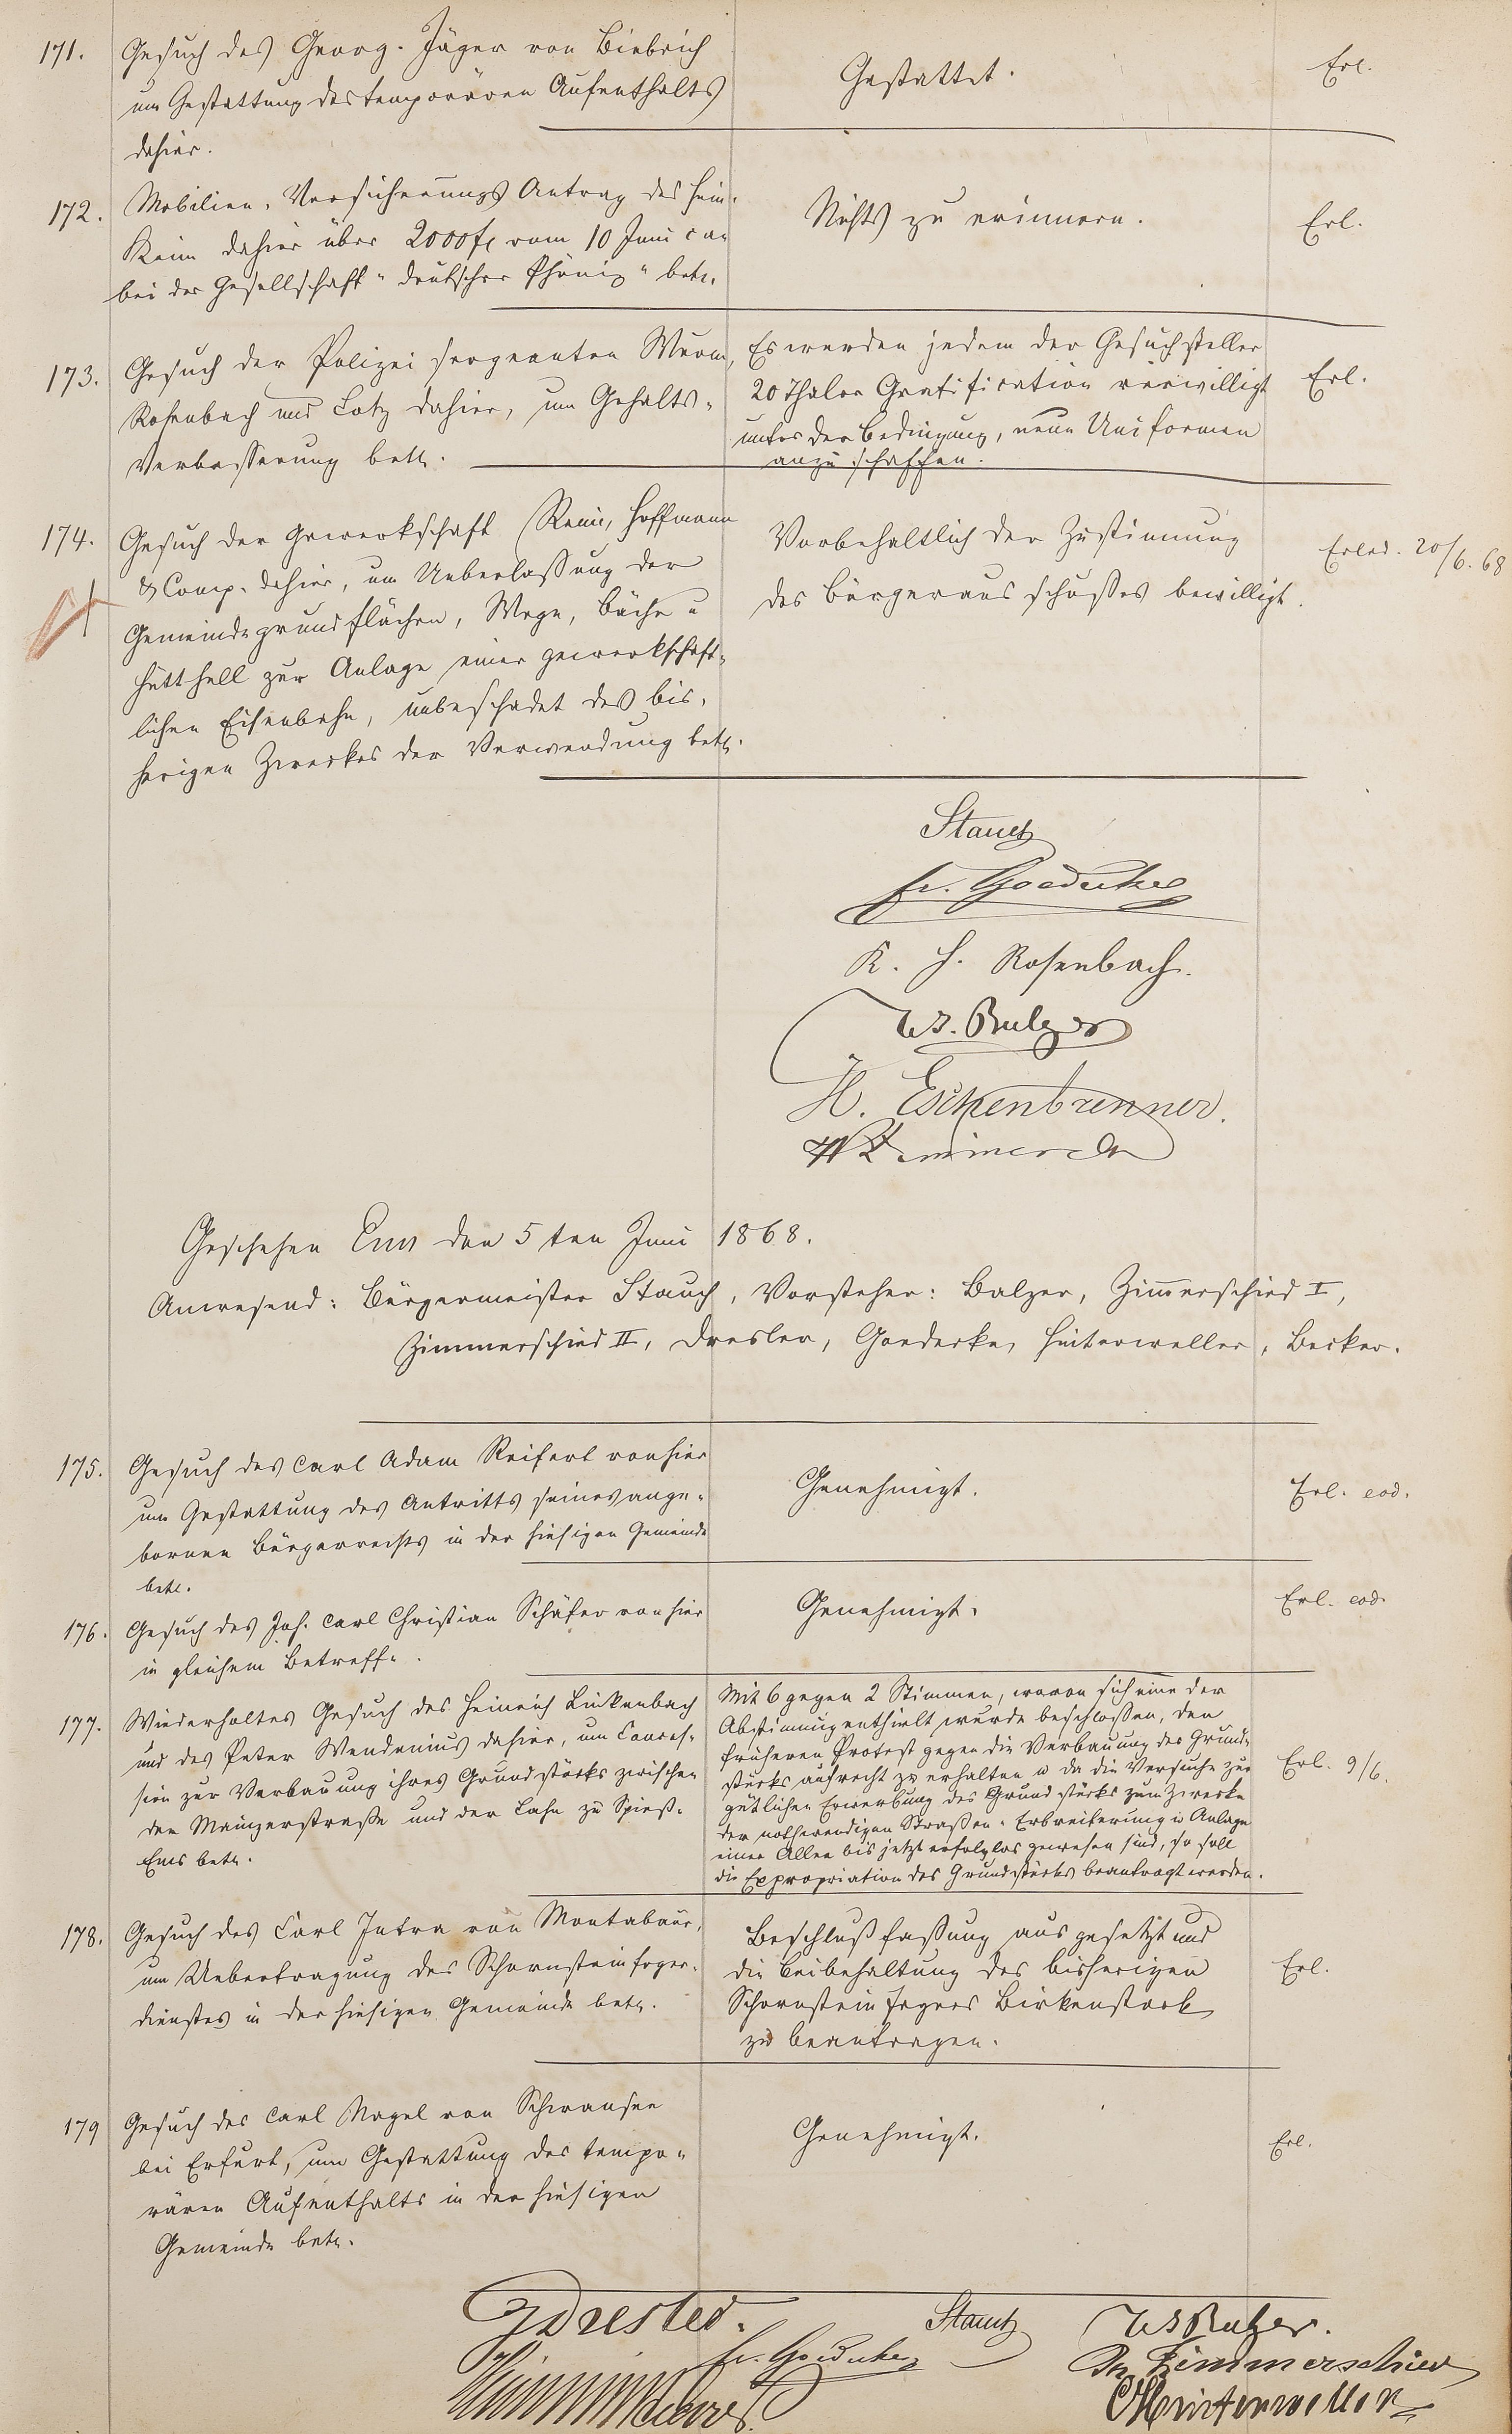 171. Gesuch des Georg. Jäger von Biebrich
um Gestattung des temporären Aufenthalts
dahier.
Gestattet.
Erl.
172. Mobilien-Versicherungs Antrag des Hein.
Keim dahier über 2000 fl vom 10 Juni c a.
bei der Gesellschaft "deutscher Phönix" betr.
Nichts zu erinnern.
Erl.
173. Gesuch der Polizei sergeanten Wurm,
Rosenbach und Lotz dahier, um Gehalts-
Verbesserung betr.
Es werden jedem der Gesuchsteller
20 Thaler Gratification verwilligt
unter der Bedingung, neue Uniformen
anzuschaffen.
Erl.
174. Gesuch der Gewerkschaft Remi, Hoffmann
& Comp. dahier, um Ueberlassung der
Gemeindegrundflächen, Wege, Bäche u
zur Anlage einer gewerkschaft-
lichen Eisenbahn, unbeschadet des bis-
herigen Zweckes der Verwendung betr.
Vorbehaltlich der Zustimmung
des Bürgerausschußes bewilligt.
Erled. 20/6. 68
Stauch
Fr. Goedecke
K. H. Rosenbach.
W. Balzer
H. Eschenbrenner.
Geschehen Ems den 5ten Juni 1868.
Anwesend: Bürgermeister Stauch, Vorsteher: Balzer, Zimmerschied I,
Zimmerschied II, Dresler, Goedecke, Hinterweller, Becker.
175. Gesuch des Carl Adam Reifert von hier
um Gestattung des Antritts seines ange-
bornen Bürgerrechts in der hiesigen Gemeinde
betr.
Genehmigt.
Erl. eod.
176. Gesuch des Joh. Carl Christian Schäfer von hier
in gleichem Betreff.
Genehmigt.
Erl. eod.
177. Wiederholtes Gesuch des Heinrich Linkenbach
und des Peter Wendenius dahier, um Conces-
sion zur Verbauung ihres Grundstücks zwischen
der Mainzerstraße und der Lahn zu Spieß-
Ems betr.
Mit 6 gegen 2 Stimmen, wovon sich eine der
Abstimmung enthielt wurde beschlossen, den
früheren Protest gegen die Verbauung des Grund-
stücks aufrecht zu erhalten u da die Versuche zur
gütlichen Erwerbung des Grundstücks zum Zwecke
der nothwendigen Straßen-Erbreiterung u Anlage
einer Allee bis jetzt erfolglos gewesen sind, so soll
die Expropriation des Grundstücks beantragt werden.
Erl. 9/6.
178. Gesuch des Carl Intra von Montabaur,
um Uebertragung des Schornsteinfeger-
dienstes in der hiesigen Gemeinde betr.
Beschlußfassung ausgesetzt und
die Beibehaltung des bisherigen
Schornsteinfegers Birkenstock
zu beantragen.
Erl.
179 Gesuch des Carl Nagel von Schwansee
bei Erfurt, um Gestattung des tempo-
rären Aufenthalts in der hiesigen
Gemeinde betr.
Genehmigt.
Erl.
Dresler.
Stauch
W Balzer.
Fr. Goedecke
Zimmerschied
Hinterweller